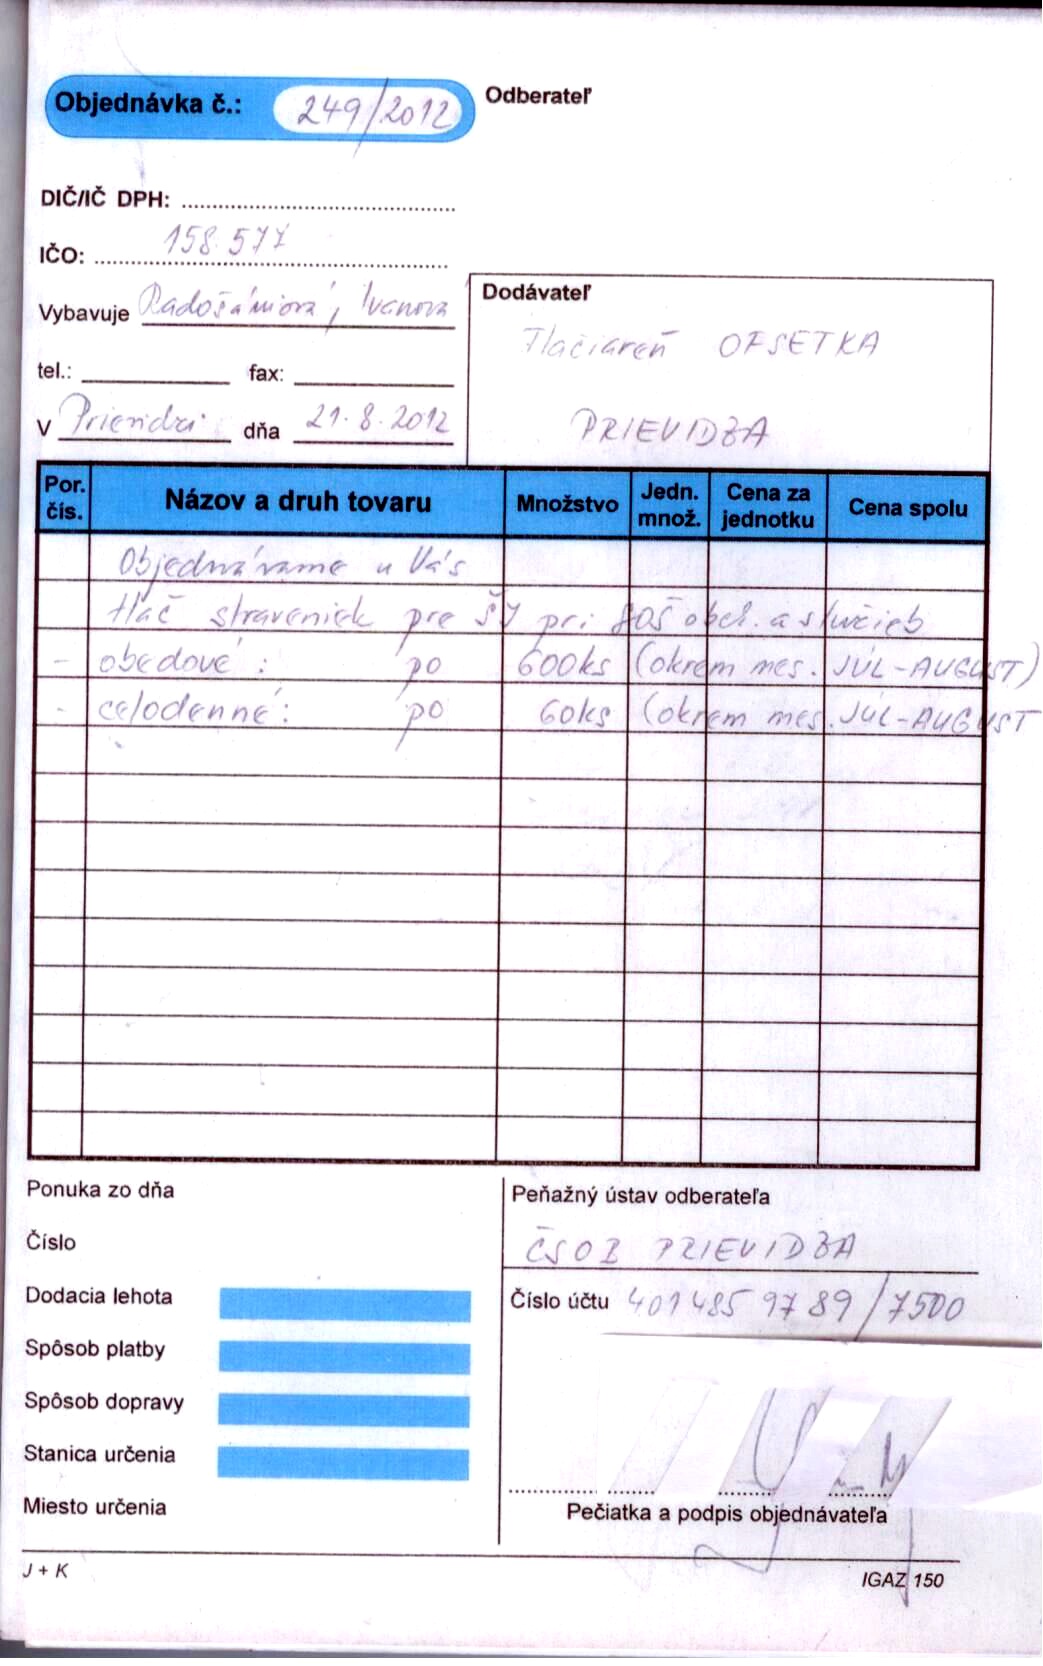 Objednávka č.: 249/2012
Odberateľ
DIČ/IČ DPH:
IČO: 158 577
Vybavuje Radošániová, Ivanová
tel.: fax:
V Prievidzi dňa 21.8.2012
Dodávateľ
Tlačiareň OFSETKA
PRIEVIDZA
Por. čís. Názov a druh tovaru Množstvo Jedn. množ. Cena za jednotku Cena spolu
Objednávame u Vás
tlač straveniek pre ŠJ pri SOŠ obch. a služieb
- obedové : po 600ks (okrem mes. JÚL-AUGUST)
- celodenné: po 60ks (okrem mes. JÚL-AUGUST
Ponuka zo dňa
Číslo
Dodacia lehota
Spôsob platby
Spôsob dopravy
Stanica určenia
Miesto určenia
Peňažný ústav odberateľa
ČSOB PRIEVIDZA
Číslo účtu 401485 9789/7500
Pečiatka a podpis objednávateľa
J + K
IGAZ 150